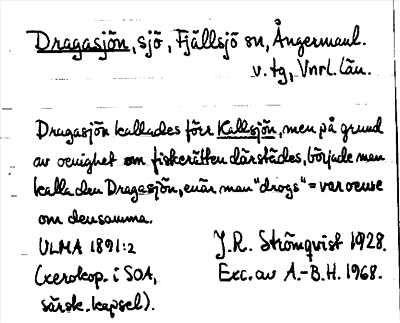 Dragasjön, sjö, Fjällsjö sn, Ångermanl.
v. tg, Vnrl. län.
Dragasjön kallades förr Kallsjön, men på grund
av oenighet om fiskerätten därstädes, började man
kalla den Dragasjön, enär man "drogs" = var oense
om densamma.
ULMA 1891:2 J.R. Strömqvist 1928.
(xerokop. i SOA, Exc. av A.-B.H. 1968.
särsk. kapsel).